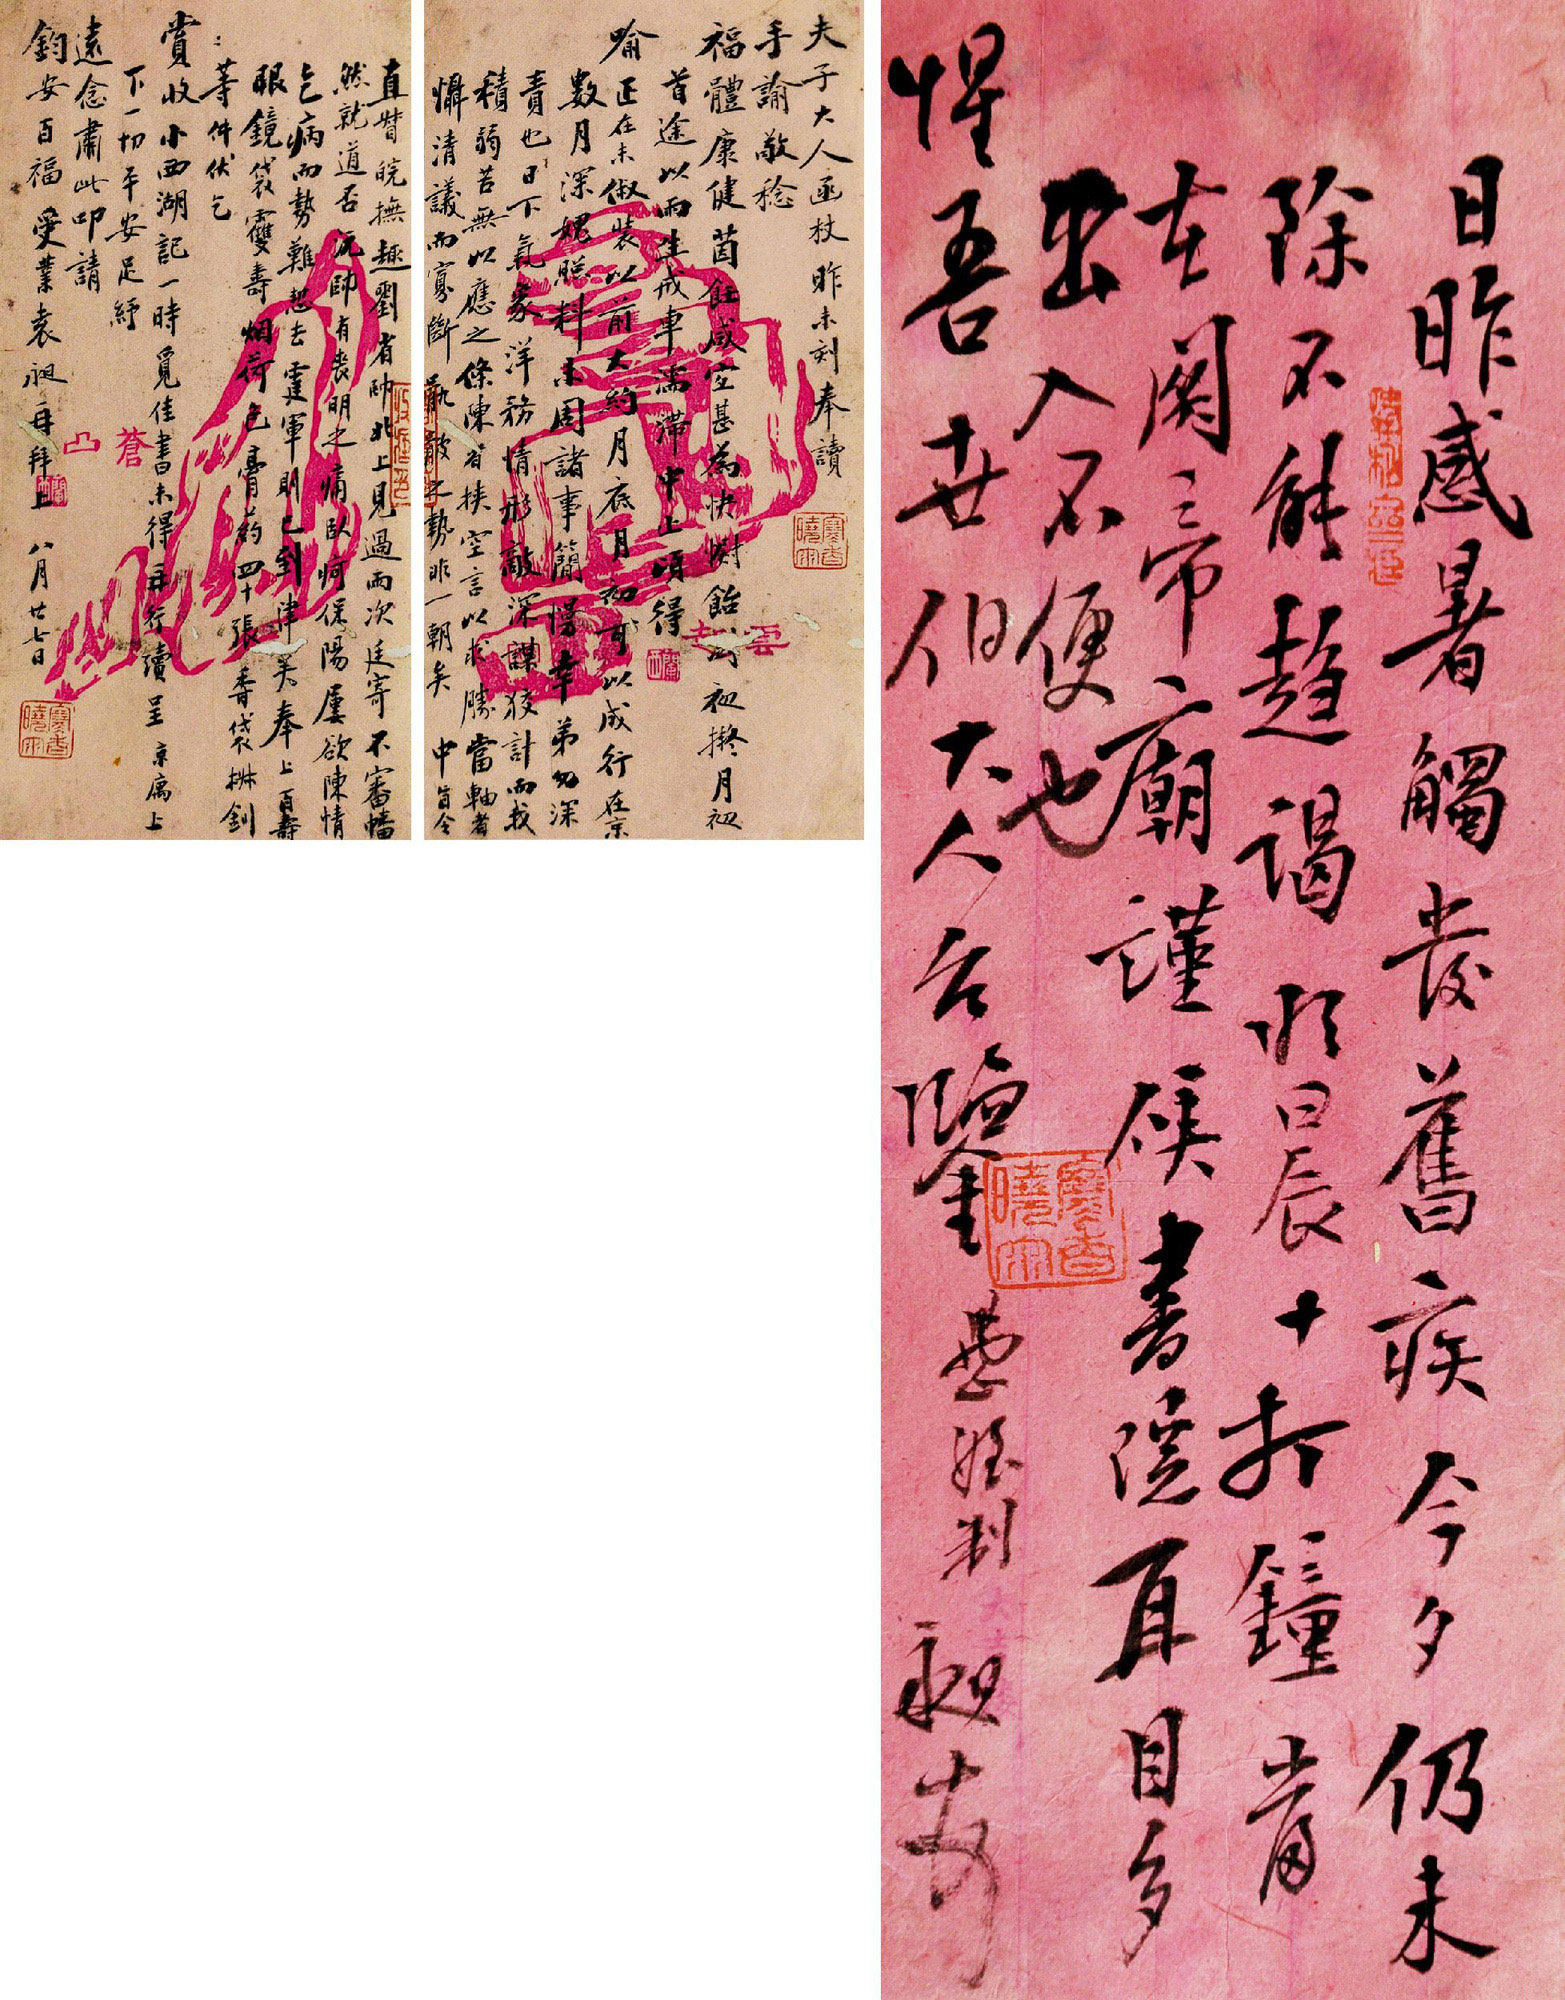 日昨感暑觸發舊疾今夕仍未
除不能趨謁明日晨十打鐘當
在關帝廟謹候書送耳目多
出入不便也
惺吾世伯大人台鑒 愚姪制昶頓首
夫子大人函杖昨未刻奉讀
手諭敬稔
福體康健茵飪咸宜甚為快慰飴 初擬月初
首途以雨生戎車濡滯中上頃得
喻正在未俶裝以前大約月底月初可以成行在京
數月深媿照料未周諸事簡慢幸弟勿深
責也日下氣象洋務情形敵深謀狡計而我
積弱苦無以應之條陳者挾空言以求勝當軸者
懾清議而寡斷 敝之勢非一朝矣 中旨令
直督皖撫趣劉省帥北上見過兩次廷寄不審幡
然就道否沅帥有喪明之痛臥疴保陽屢欲陳情
乞病而勢難恝去霆軍則已到津矣奉上百壽
眼鏡袋雙壽烟荷包膏葯四十張香袋栟釧
等件伏乞
賞收小西湖記一時覓佳書未得再行續呈京寓上
下一切平安足紓
遠念肅此叩請
鈞安百福 受業袁昶再拜上 八月廿七日